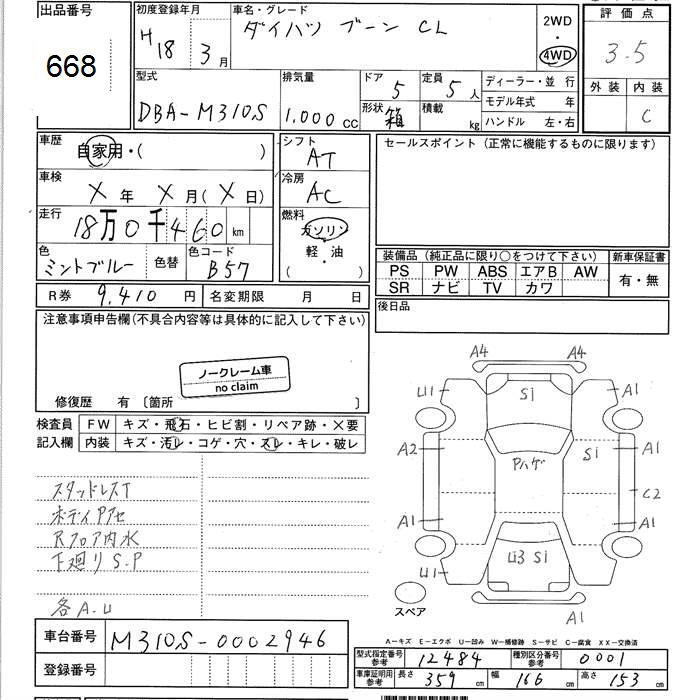 出品番号
668
初度登録年月
H18 3月
車名・グレード
ダイハツ ブーン CL
2WD
・
4WD
評価点
3.5
外装 内装
C
型式
DBA-M310S
排気量
1.000 CC
ドア
5
定員
5人
形状
箱
積載
kg
ディーラー・並行
モデル年式 年
ハンドル 左・右
車歴
自家用・( )
シフト
AT
セールスポイント (正常に機能するものに限ります)
車検
X年 X月(X日)
冷房
AC
走行
18万0千460km
燃料
ガソリン
軽・油
( )
色
ミントブルー
色替
色コード
B57
装備品 (純正品に限り○をつけて下さい)
新車保証書
PS PW ABS エアB AW
SR ナビ TV カワ
有・無
R券 9,410円
名変期限 月 日
後日品
注意事項申告欄(不具合内容等は具体的に記入して下さい)
ノークレーム車
no claim
修復歴 有 〔箇所 〕
検査員
記入欄
FW キズ・飛石・ヒビ割・リペア跡・×要
内装 キズ・汚レ・コゲ・穴・スレ・キレ・破レ
スタッドレスT
ボディPアセ
Rフロア内水
下廻りS.P
各A.U
A4 A4
U1 S1 A1
A2 Pハゲ S1 A1
C2
A1 A1
U1 U3 S1
スペア
A1
A-キズ E-エクボ U-凹み W-補修跡 S-サビ C-腐食 XX-交換済
車台番号 M310S-0002946
登録番号
型式指定番号
参考
12484
種別区分番号
参考
0001
車庫証明用
参考
長さ 359cm 幅 166cm 高さ 153cm